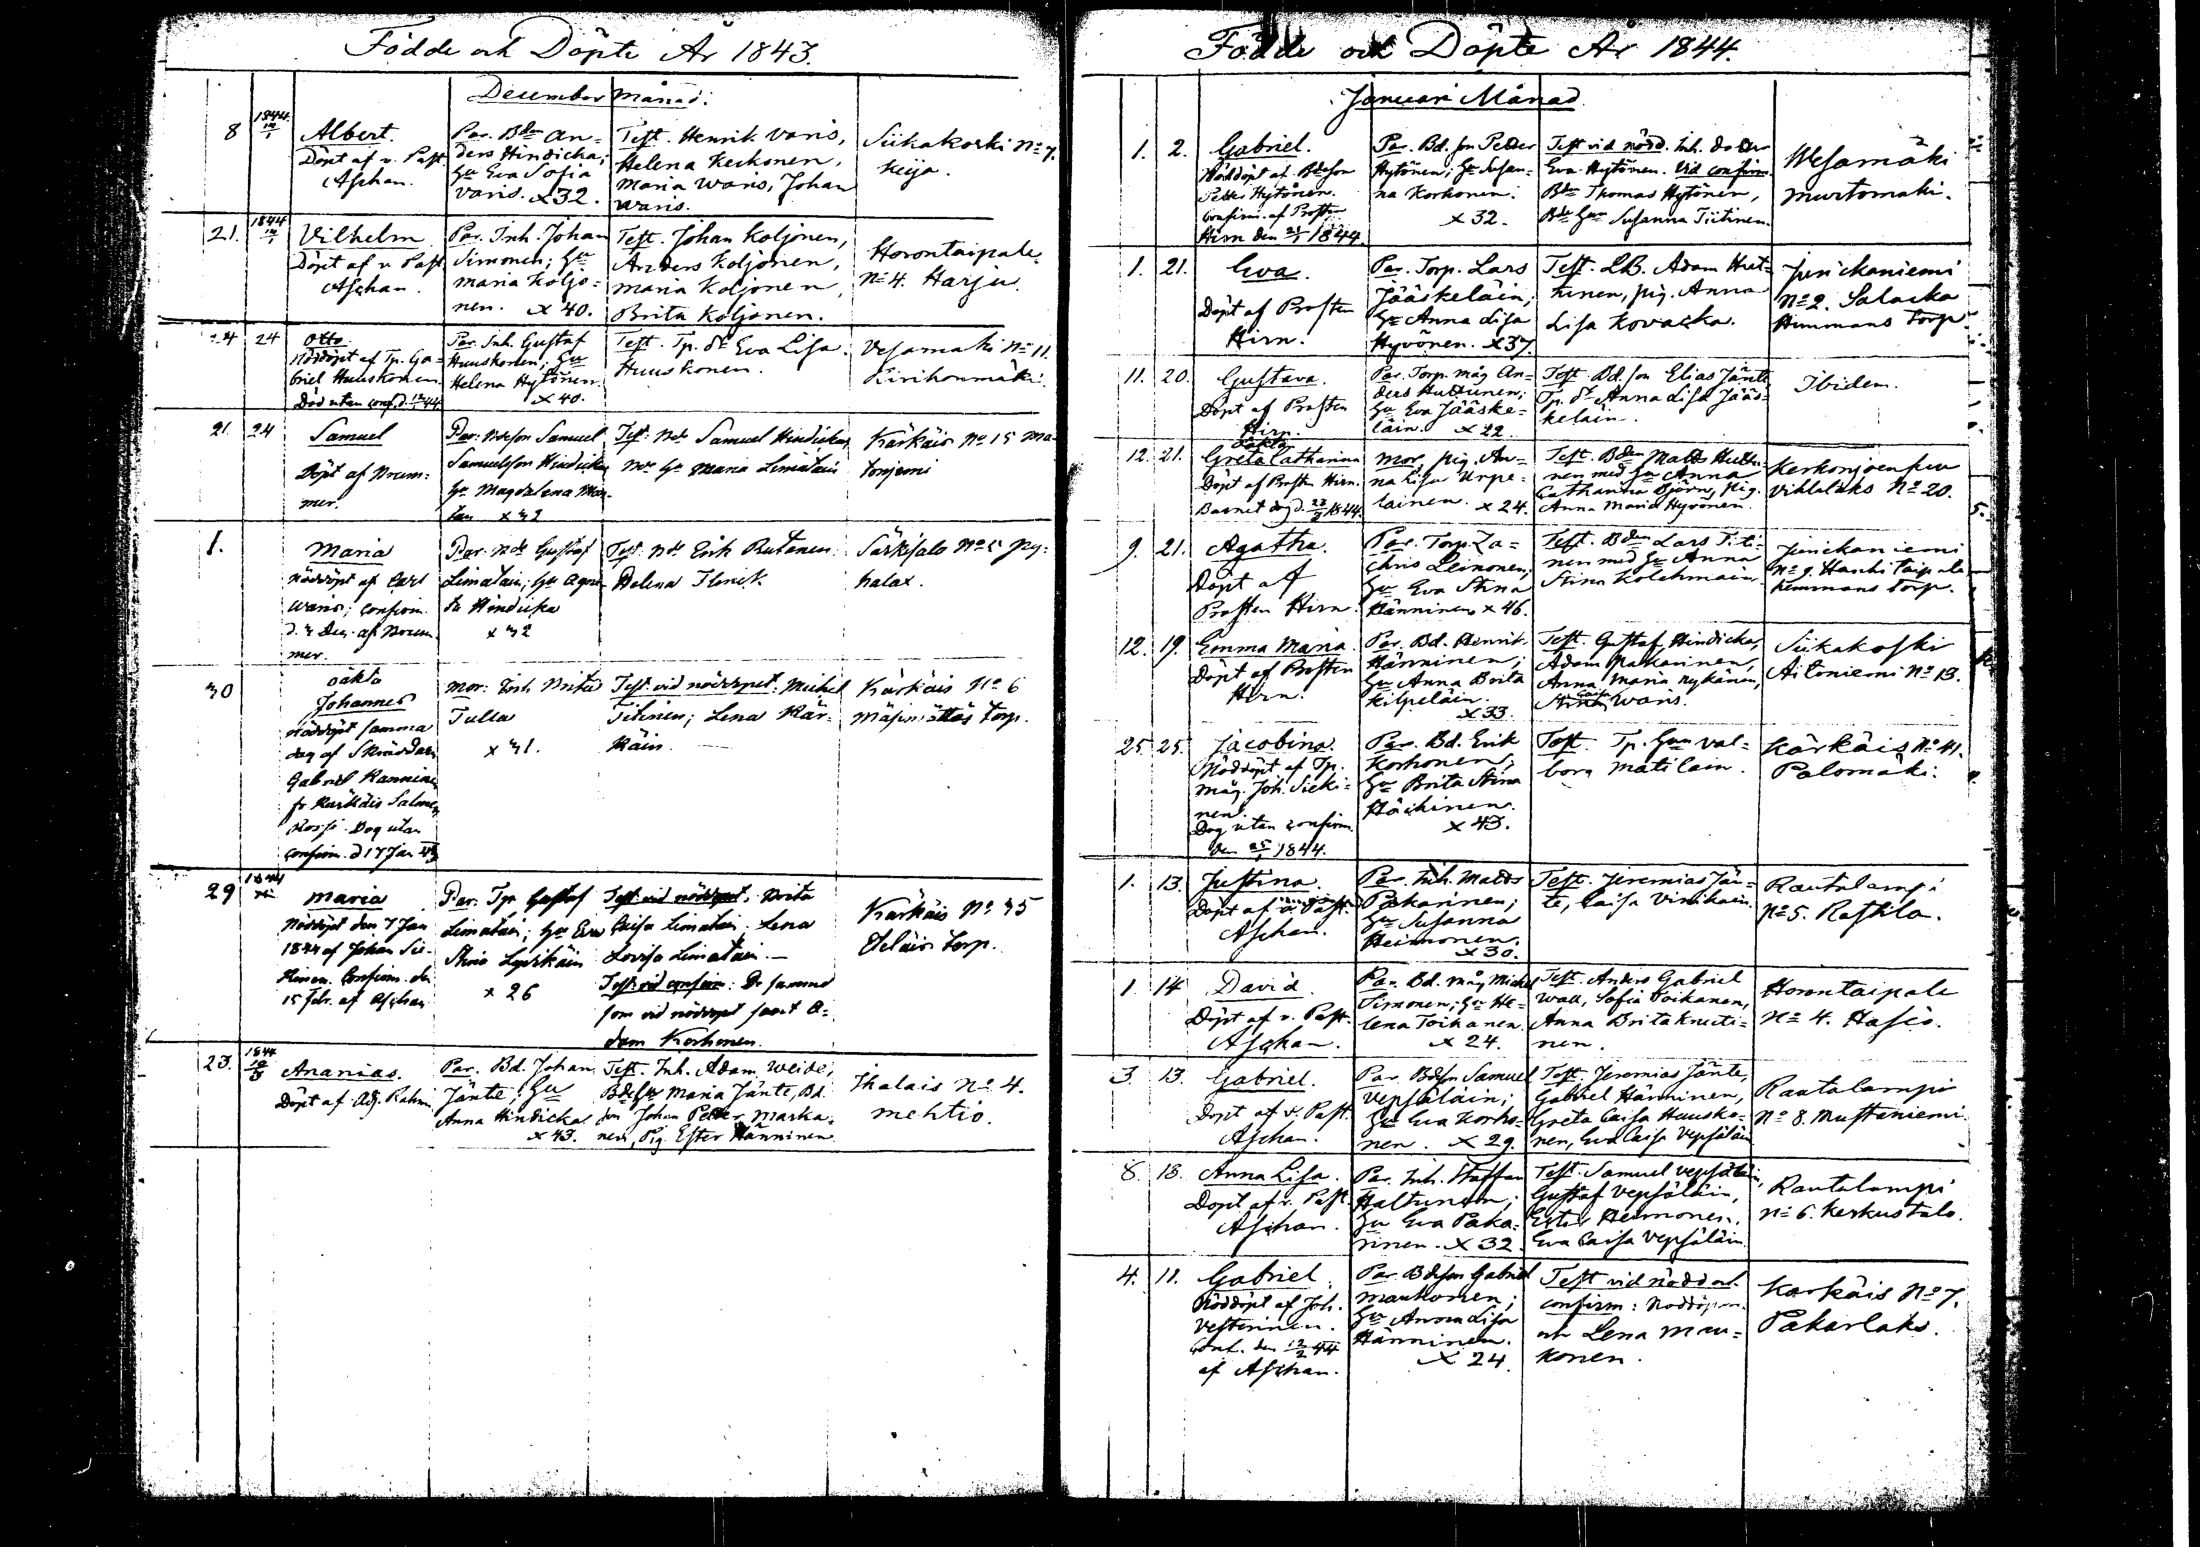 Födde och Döpte År 1843.
December Månad.
8 1844 14/1
Albert.
Döpt af v. Past.
Aschan.
Par. Bdn An=
ders Hindicka;
Hu Eva Sofia
Varis. x 32.
Test. Henrik Varis,
Helena Kerkonen,
Maria Waris, Johan
Waris.
Siikakoski No 7.
Keija.
21. 1844 14/1
Vilhelm
Döpt af v. Past.
Aschan.
Par. Inh. Johan
Simonen; Hu
Maria Koljo=
nen. x 40.
Test. Johan Koljonen,
Anders Koljonen,
Maria Koljonen,
Brita Koljonen.
Horontaipale
No 4. Harju.
24 24
Otto.
Nöddöpt af Tp. Ga=
briel Huuskonen
Död utan conf. d.
Par. Inh. Gustaf
Huuskonen; Hu
Helena Hytönen.
x 40.
Test. Tp. dr Eva Lisa
Huuskonen.
Vesamäki No 11.
Kirihonmäki.
21. 24
Samuel
Döpt af Brum=
mer.
Par: Bdeson Samuel
Samuelsson Hindicka
Hu Magdalena
x 32
Test: Bde Samuel Hindicka,
Bde Hu Maria Limatain
Kärkäis No 15 Ma=
toniemi
1.
Maria
Nöddöpt af Carl
Waris; confirm.
d. 3 Dec. af Brum=
mer.
Par: Bde Gustaf
Limatain; Hu Aga=
ta Hindicka
x 32
Test: Bde Erik Rutanen
Helena
Särkisalo No 5 Py=
halax.
30
oäkta
Johannes
nöddöpt samma
dag af Skräddar
Gabriel Hänninen
fr Kärkäis Salmen
Dog utan
confirm. d 17 Jan
Mor: Inh Brita
Tulla
x 31.
Test. vid nöddopet: Michel
Titinen; Lena Kär=
käin.
Kärkäis No 6
torp.
29 1844
Maria
Nöddöpt den 7 Jan
1844 af Johan Sie=
kinen. Confirm. den
15 Febr. af Aschan
Par: Tp. Gustaf
Limatain; Hu Eva
Stina Lyyikäin
x 26
Test vid nöddopet: Brita
Caisa Limatain. Lena
Lovisa Limatain. —
Test: vid confirm: De samme
som vid nöddopet samt A=
dam Korhonen.
Kärkäis No 35
torp.
23. 1844
Ananias.
Döpt af Adj. Rahm
Par. Bd. Johan
Jänte; Hu
Anna Hindicka
x 43.
Test. Inh. Adam Weide,
Bde Hu Maria Jänte, Bd.
son Johan Petter Marka=
nen, Pig. Ester Hänninen.
Jhalais No 4.
Mehtio.
Födde och Döpte År 1844.
Januari Månad.
1. 2.
Gabriel.
Nöddöpt af Bdeson
Petter Hytönen.
Confirm. af Prosten
Hirn den 21/1 1844.
Par. Bd. son Petter
Hytönen; Hu Susan=
na Korhonen.
x 32.
Test vid nödd. Inh. dotter
Eva Hytönen. Vid confirm
Bdn Thomas Hytönen,
Bde Hun Susanna Tiitinen.
Wesamäki
Murtomäki.
1. 21.
Eva.
Döpt af Prosten
Hirn.
Par. Torp. Lars
Jääskeläin;
Hu Anna Lisa
Hyvönen. x 37.
Test. LB. Adam Hut=
tunen, pig. Anna
Lisa Kovaska.
Junickaniemi
No 2. Salacka
Hemmans torp.
11. 20.
Gustava.
Döpt af Prosten
Hirn.
Par. Torp. måg An=
ders Huttunen;
Hu Eva Jääske=
läin. x 22.
Test. Bd. son Elias Jänte,
Tp. dr Anna Lisa Jääs=
keläin.
Ibidem.
12. 21.
oäkta
Greta Catharina
Döpt af Prosten Hirn.
Barnet dog d. 1844.
Mor, pig. An=
na Lisa Urpe=
lainen. x 24.
Test. Bden Matts Hutu=
nen med Hu Anna
Catharina Björn, pig.
Anna Maria Hyvönen.
Kerkonjoensuu
Vihtalaks No 20.
9. 21.
Agatha.
Döpt af
Prosten Hirn.
Par. Torp. Za=
chris Leinonen;
Hu Eva Stina
Hänninen x 46.
Test. Bden Lars Titi=
nen med Hu Anna
Stina Kolehmain.
Junickaniemi
No 9. Hanhitaipale
hemmans torp.
12. 19.
Emma Maria.
Döpt af Prosten
Hirn.
Par. Bd. Henrik
Hänninen;
Hu Anna Brita
Kilpeläin.
x 33.
Test. Gustaf Hindicka,
Adam Pakarinen,
Anna Maria Nykänen,
Caisa Waris.
Siikakoski
Aitoniemi No 13.
25. 25.
Jacobina.
Nöddöpt af Tp.
måg. Joh. Sieki=
nen.
Dog utan confirm.
den 25/1 1844.
Par. Bd. Erik
Korhonen;
Hu Brita Stina
Häckinen.
x 43.
Test. Tp. Hun Val=
borg Matilain.
Kärkäis No 41.
Palomäki.
1. 13.
Justina.
Döpt af v. Past.
Aschan.
Par. Inh. Matts
Pakarinen;
Hu Susanna
Heimonen.
x 30.
Test. Jeremias Jän=
te, Caisa Vinikain.
Rautalampi
No 5. Rastila.
1. 14
David.
Döpt af v. Past.
Aschan.
Par. Bd. måg Michel
Simonen; Hu He=
lena Toikanen.
x 24.
Test. Anders Gabriel
Wall, Sofia Toikanen,
Anna Brita Knuti=
nen.
Horontaipale
No 4. Hasio.
3. 13.
Gabriel.
Döpt af v. Past.
Aschan.
Par. Bdson Samuel
Vepsäläin;
Hu Eva Korho=
nen. x 29.
Test. Jeremias Jänte,
Gabriel Hänninen,
Greta Caisa Huusko=
nen, Eva Caisa Vepsäläin
Rautalampi
No 8. Mustaniemi.
8. 13.
Anna Lisa.
Döpt af v. Past.
Aschan.
Par. Inh. Staffan
Haltunen;
Hu Eva Paka=
rinen. x 32.
Test. Samuel Vepsäläin,
Gustaf Vepsäläin,
Ester Heimonen,
Eva Caisa Vepsäläin.
Rautalampi
No 6. Kerkustalo.
4. 11.
Gabriel.
Nöddöpt af Joh.
Vesterinen.
Conf. den 12/2 44
af Aschan.
Par. Bdeson Gabriel
Maukonen;
Hu Anna Lisa
Hänninen.
x 24.
Test vid nödd och
confirm: Nöddöparen
och Lena Mau=
konen.
Karkäis No 7.
Pakarlaks.